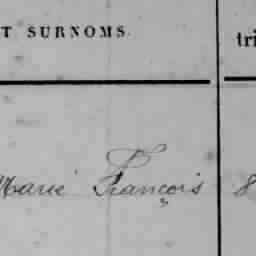 T SURNOMS. tri
Marie François 8